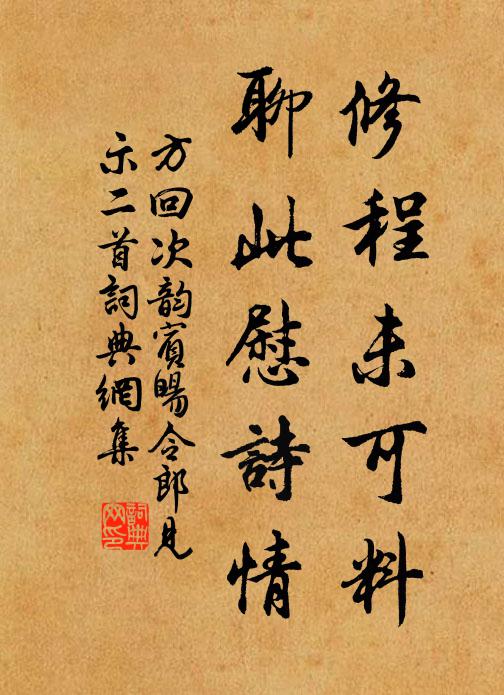 修程未可料
聊此慰詩情
方回次韵賓暘令郎見
示二首詞典網集
詞典
网印